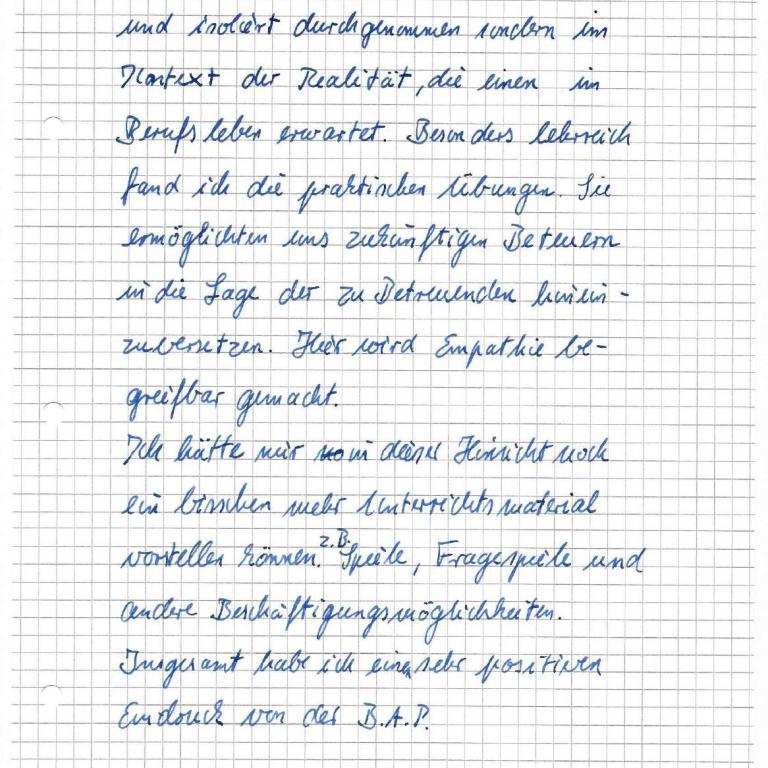 und isoliert durchgenommen sondern im
Kontext der Realität, die einen im
Berufsleben erwartet. Besonders lehrreich
fand ich die praktischen Übungen. Sie
ermöglichten uns zukünftigen Beteuern
in die Lage der zu Betreuenden hinein-
zuversetzen. Hier wird Empathie be-
greifbar gemacht.
Ich hätte mir in dieser Hinsicht noch
ein bisschen mehr Unterrichtsmaterial
vorstellen können. z.B. Spiele, Fragespiele und
andere Beschäftigungsmöglichkeiten.
Insgesamt habe ich einen sehr positiven
Eindruck von der B.A.P.